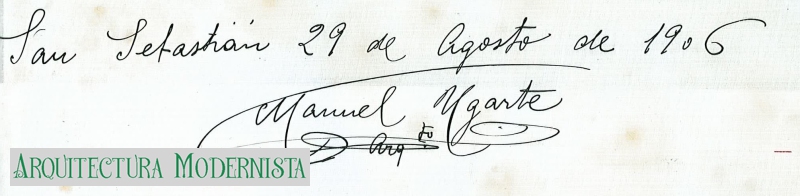 San Sebastián 29 de Agosto de 1906
Manuel Ugarte
Arqto
ARQUITECTURA MODERNISTA